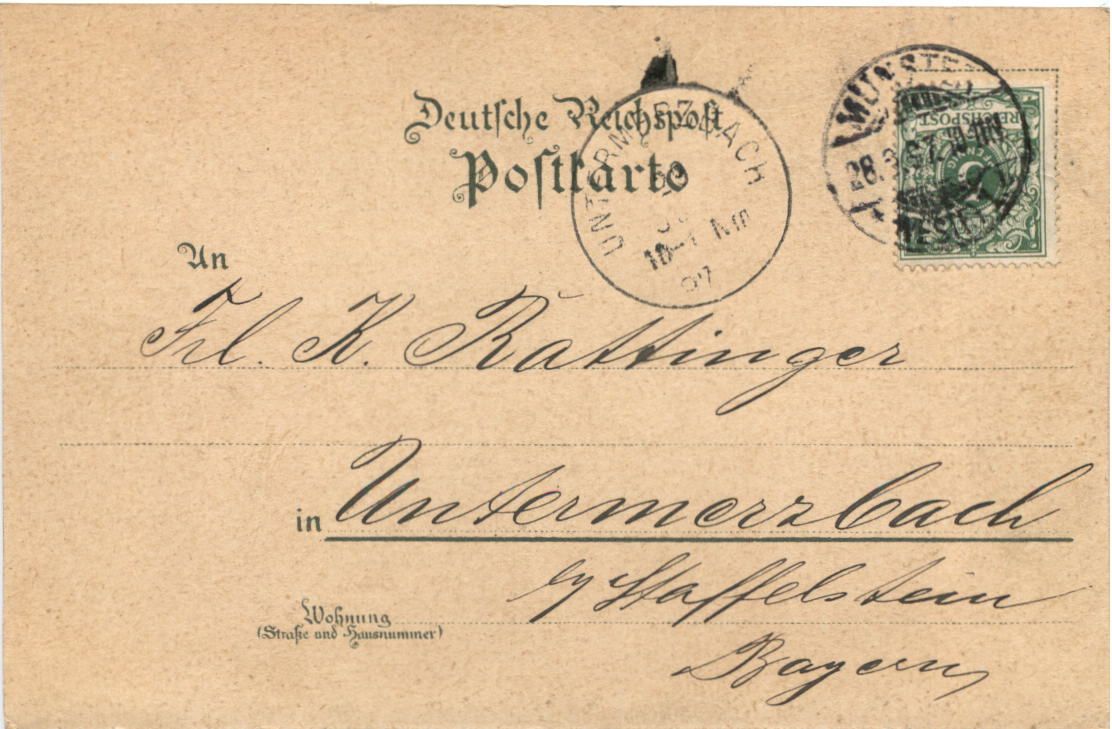 Deutsche Reichspost
Postkarte
UNTERMERZBACH
97
MÜNSTER
28.
REICHSPOST
An
Frl. K. Rattinger
in Untermerzbach
b/ Staffelstein
Bayern
Wohnung
(Straße und Hausnummer)